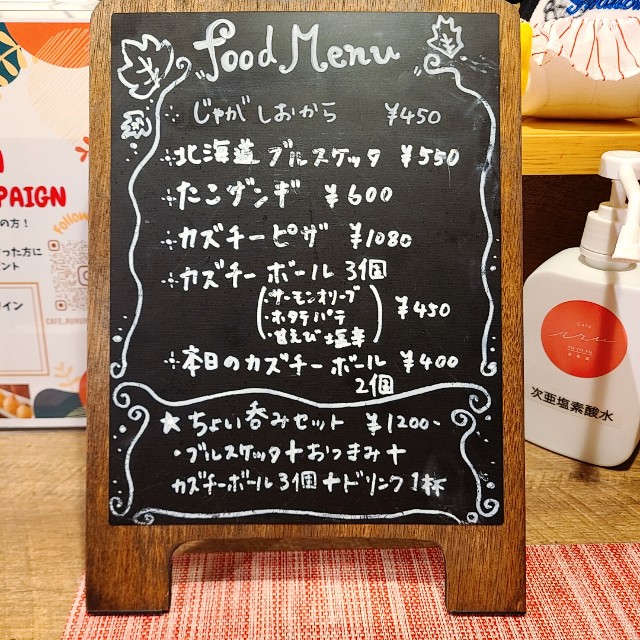 food Menu
じゃがしおから ¥450
北海道ブルスケッタ ¥550
たこザンギ ¥600
カズチーピザ ¥1080
カズチーボール 3個
・サーモンオリーブ
・ホタテパテ
・甘えび塩辛
¥450
本日のカズチーボール ¥400
2個
★ちょい呑みセット ¥1200-
・ブルスケッタ+おつまみ+
カズチーボール3個+ドリンク1杯
PAIGN
の方！
った方に
ント
イン
Follow
Cafe
次亜塩素酸水